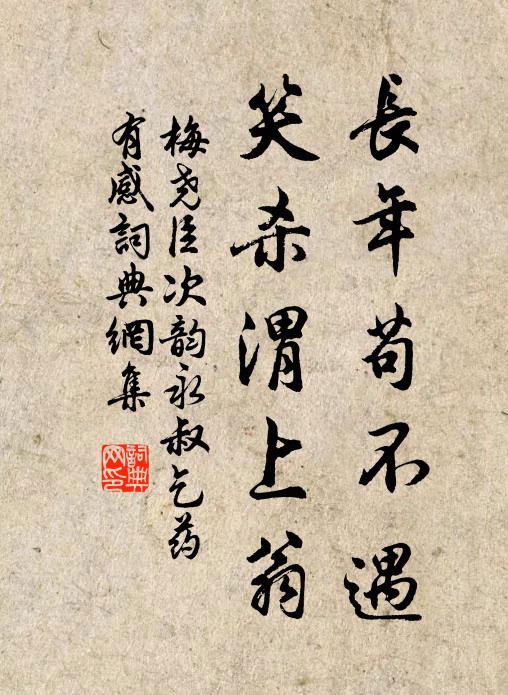 長年苟不遇
笑杀渭上翁
梅尧臣次韵永叔乞药
有感詞典網集
詞典网印